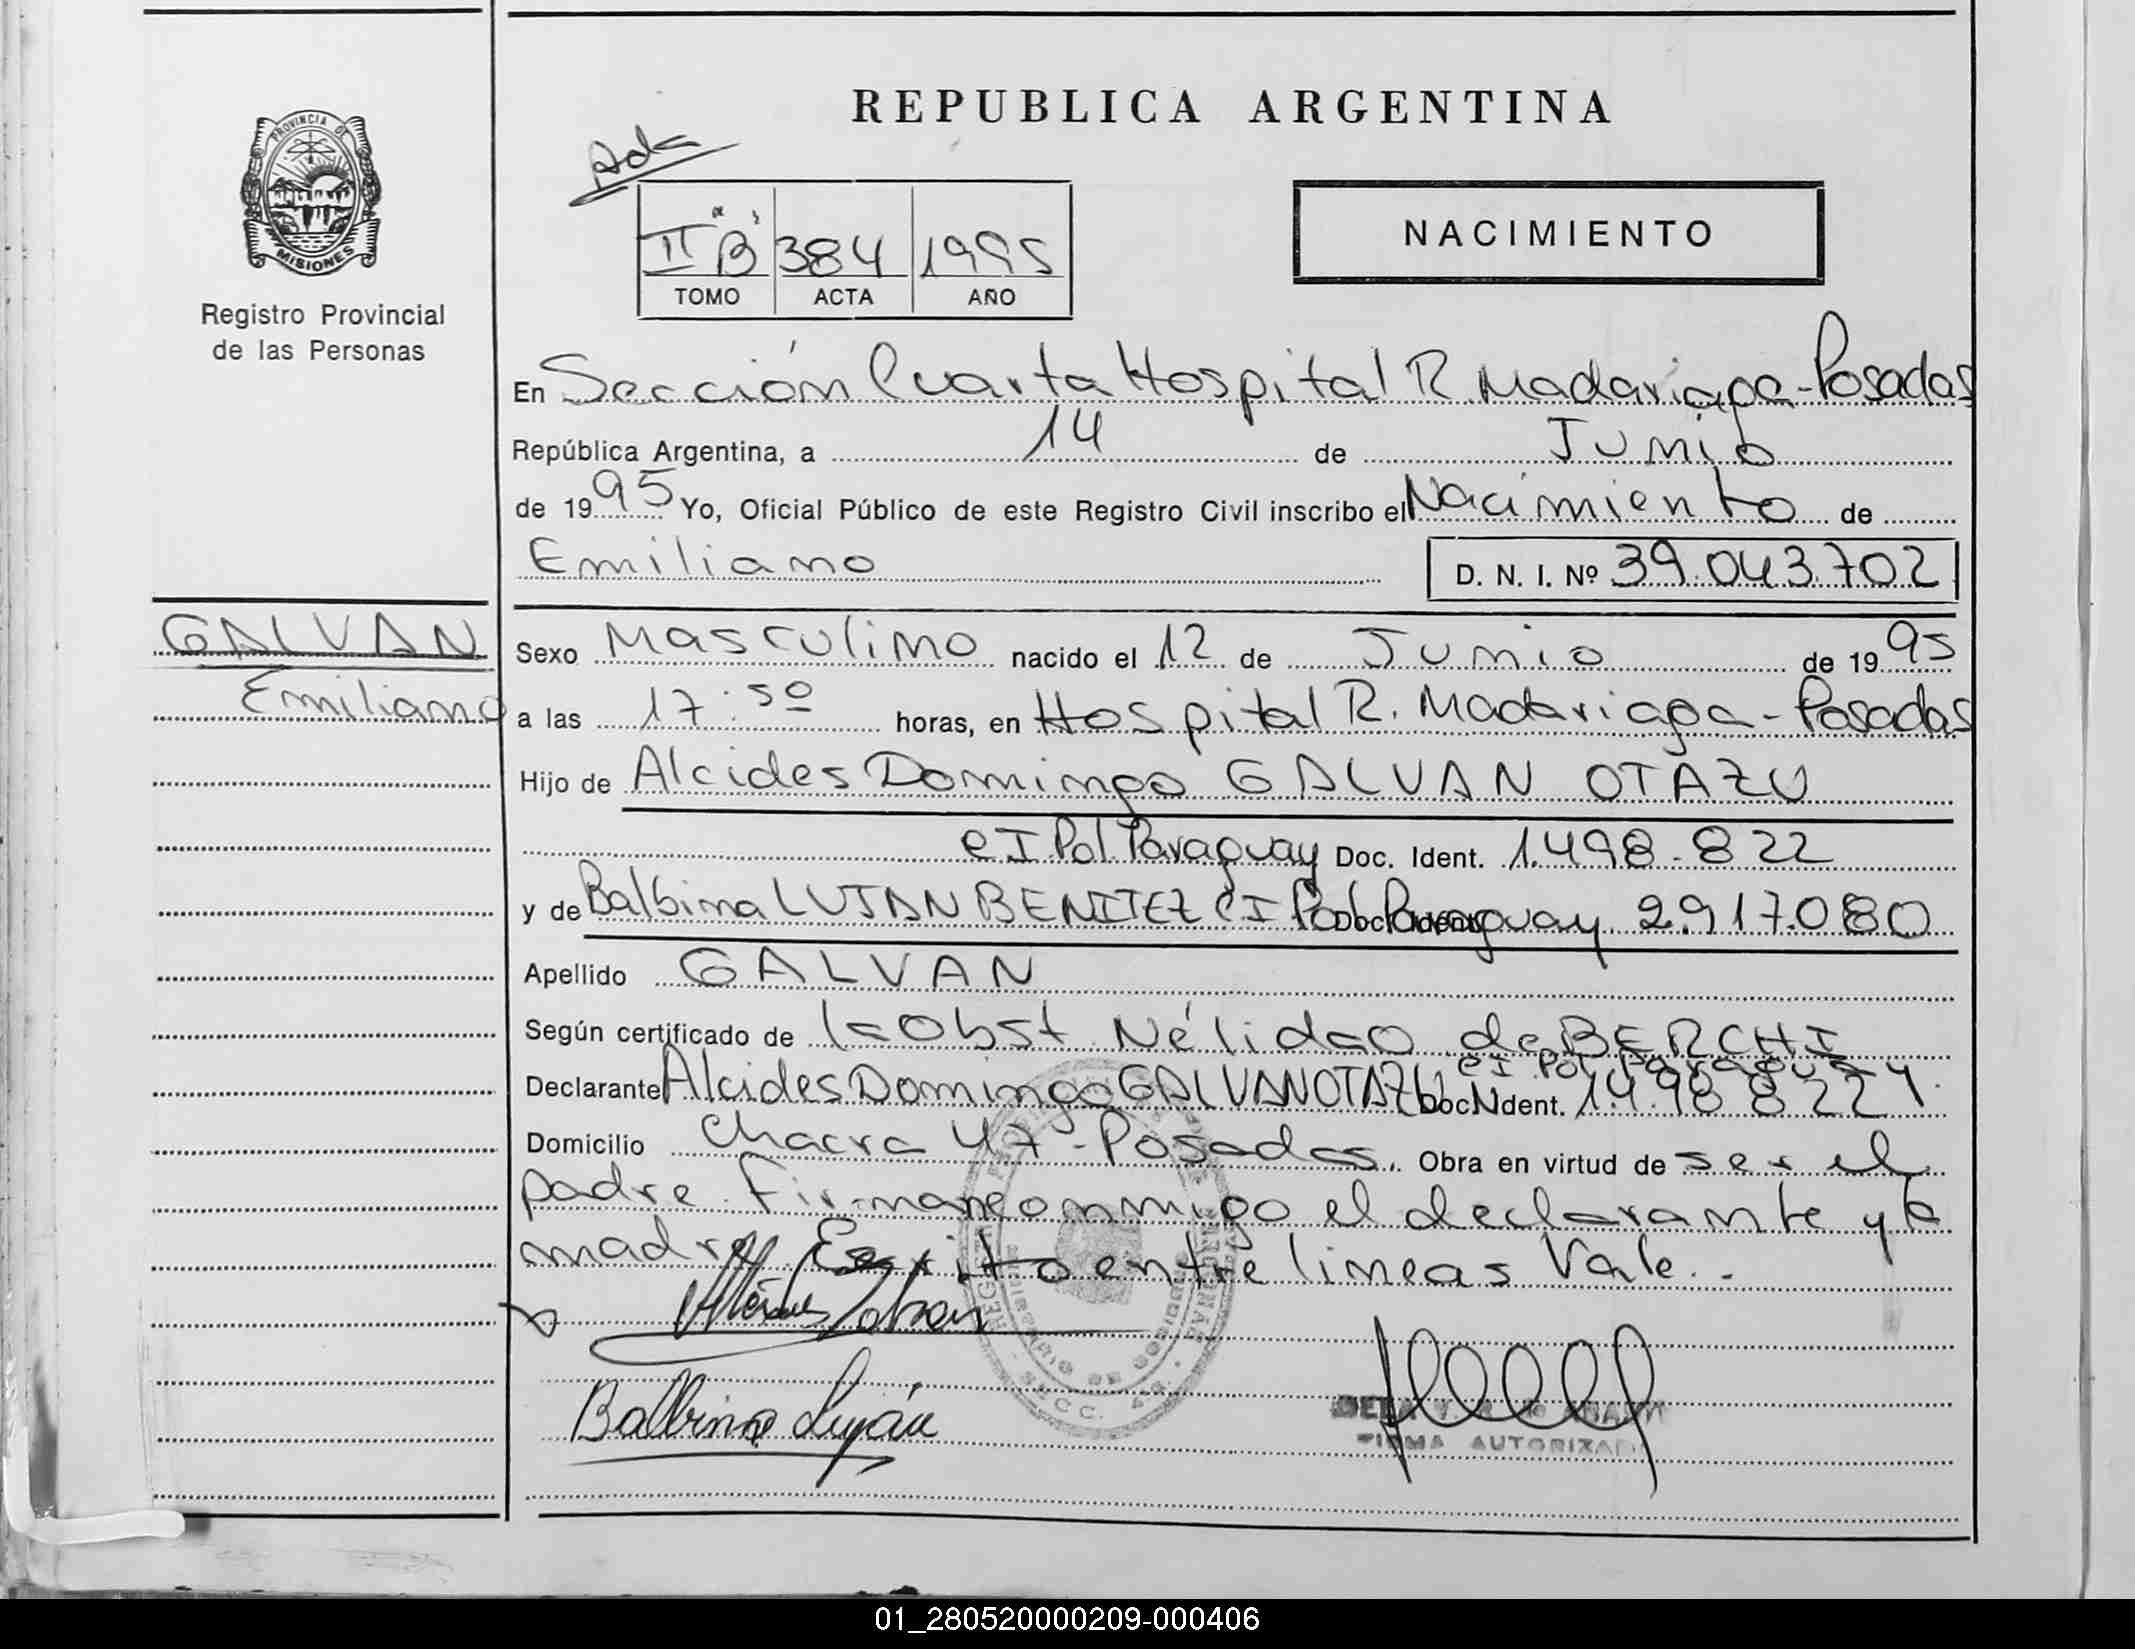 REPUBLICA ARGENTINA
PROVINCIA DE
MISIONES
Registro Provincial
de las Personas
II "B" 384 1995
TOMO ACTA AÑO
NACIMIENTO
En Sección Cuarta Hospital R. Madariaga - Posadas
República Argentina, a 14 de Junio
de 1995 Yo, Oficial Público de este Registro Civil inscribo el Nacimiento de
Emiliano D. N. I. Nº 39.043.702
GALVAN
Emiliano
Sexo Masculino nacido el 12 de Junio de 1995
a las 17:50 horas, en Hospital R. Madariaga - Posadas
Hijo de Alcides Domingo GALVAN OTAZU
CI Pol Paraguay Doc. Ident. 1.498.822
y de Balbina LUJAN BENITEZ CI Pol Paraguay Doc. Ident. 2.917.080
Apellido GALVAN
Según certificado de la Obst Nélida O de BERCHI
CI Pol Paraguay
Declarante Alcides Domingo GALVAN OTAZU Doc. Ident. 1.498.822
Domicilio Chacra 47 - Posadas. Obra en virtud de ser el
padre. Firman conmigo el declarante y la
madre. Escrito entre lineas Vale.-
Balbina Luján
SECC. 4a.
FIRMA AUTORIZADA
01_280520000209-000406